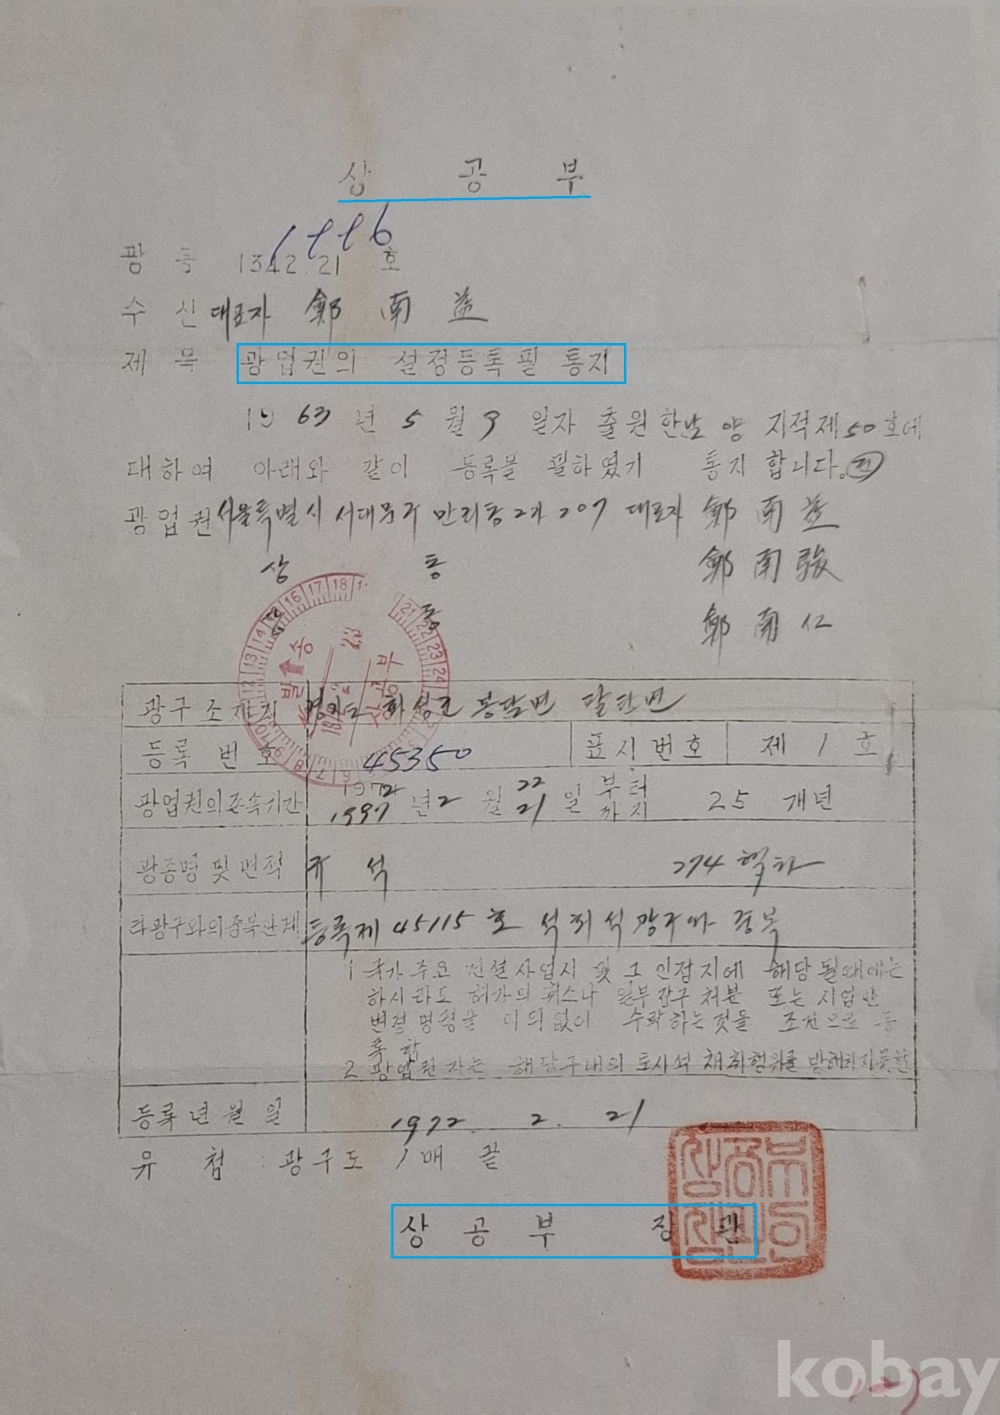 상 공 부
광 등 1342.21 호
1116
수 신 대표자 鄭 南 益
제 목 광업권의 설정등록필 통지
19 63 년 5 월 9 일자 출원한 남 양 지적 제 50 호에
대하여 아래와 같이 등록을 필하였기 통지합니다.
광업권 서울특별시 서대문구 만리동 2가 207 대표자 鄭 南 益
상 동 鄭 南 駿
동 鄭 南 仁
발송
상공부
광구소재지 경기도 화성군 봉담면 팔탄면
등록 번호 45350 표시번호 제 1 호
광업권의 존속기간 1972 1997 년 2 월 22 21 일 부터 까지 25 개년
광종명 및 면적 규 석 274 헥타
타광구와의 중복관계 등록 제 45115 호 석회석 광구와 중복
1. 국가 주요 건설사업시 및 그 인접지에 해당될 때에는
하시라도 허가의 취소나 일부 감구 처분 또는 시업안
변경 명령을 이의없이 수락하는 것을 조건으로 등
록 함
2. 광업권자는 해당구내의 토사석 채취행위를 방해하지못함
등록년월일 1972. 2. 21
유 첨 : 광구도 1 매 끝
상 공 부 장 관
kobay